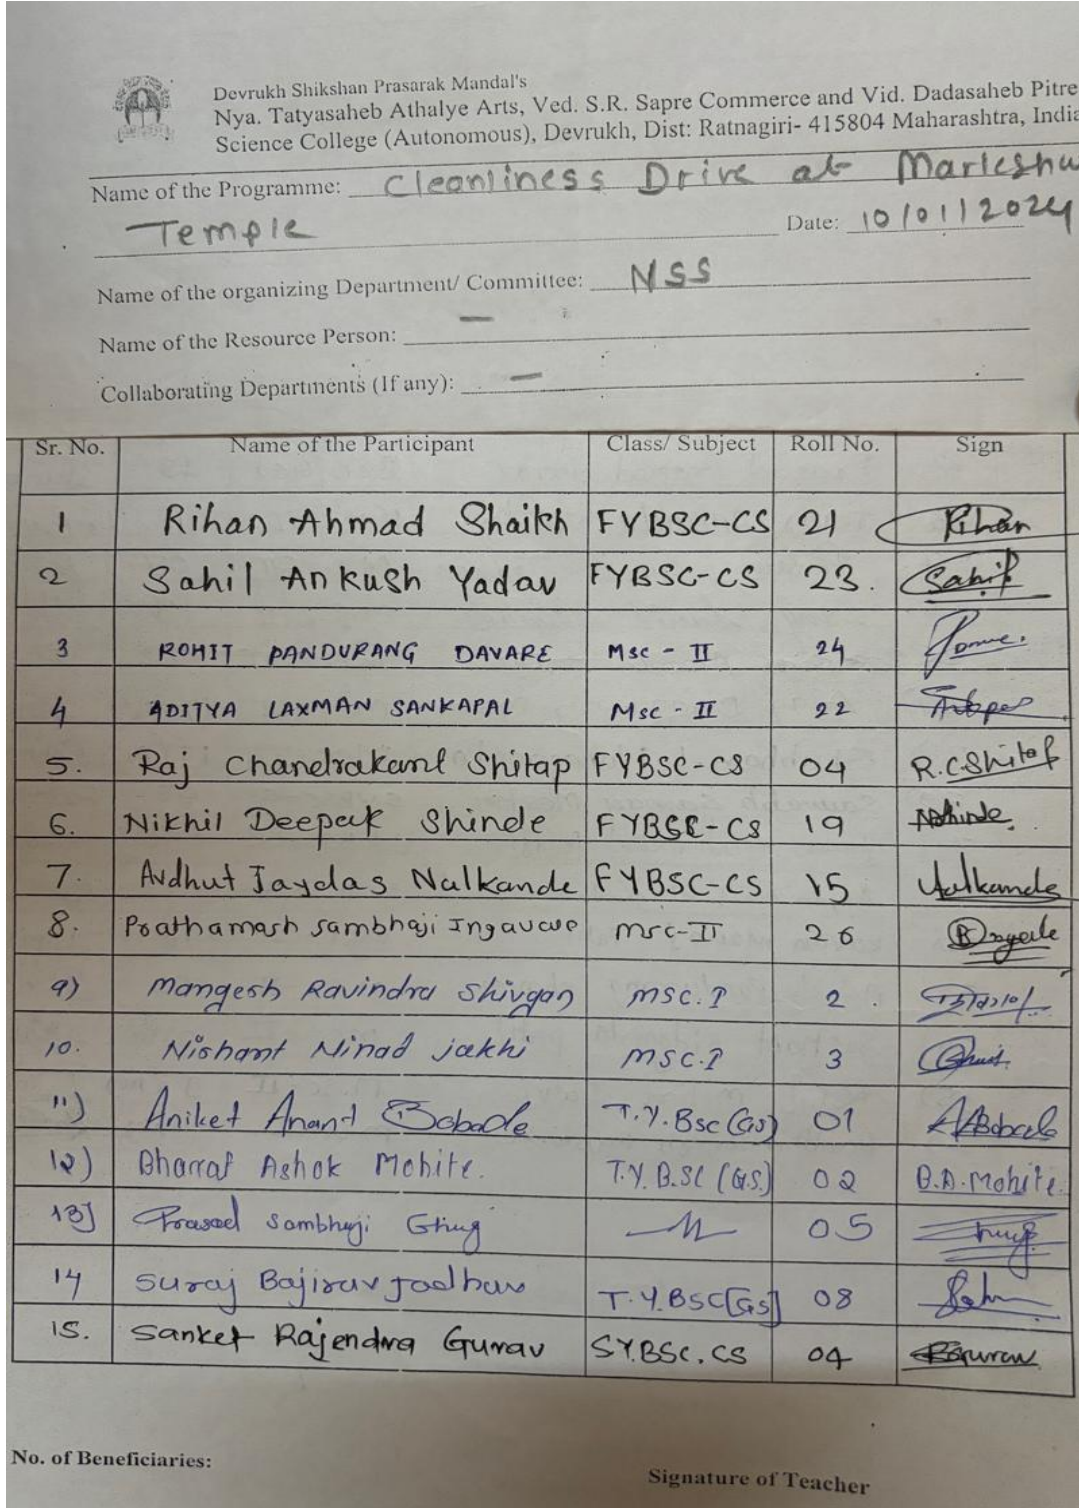 Devrukh Shikshan Prasarak Mandal's
Nya. Tatyasaheb Athalye Arts, Ved. S.R. Sapre Commerce and Vid. Dadasaheb Pitre
Science College (Autonomous), Devrukh, Dist: Ratnagiri- 415804 Maharashtra, India
Name of the Programme: Cleanliness Drive at Marleshw
Temple Date: 10/01/2024
Name of the organizing Department/ Committee: NSS
Name of the Resource Person: —
Collaborating Departments (If any): —
Sr. No. Name of the Participant Class/ Subject Roll No. Sign
1 Rihan Ahmad Shaikh FYBSC-CS 21 Rihan
2 Sahil Ankush Yadav FYBSC-CS 23. Sahil
3 ROHIT PANDURANG DAVARE Msc - II 24
4 ADITYA LAXMAN SANKAPAL Msc - II 22
5. Raj Chandrakant Shitap FYBSC-CS 04 R.C.Shitap
6. Nikhil Deepak Shinde FYBSC-CS 19 NDhinde
7. Avdhut Jaydas Nalkande FYBSC-CS 15 Nalkande
8. Prathamesh Sambhaji Ingavale msc-II 26
9) Mangesh Ravindra Shivgan MSC.I 2
10. Nishant Ninad jakhi MSC.I 3
11) Aniket Anand Bobade T.Y.Bsc (GS) 01 AABobade
12) Bharat Ashok Mohite. T.Y.B.SC (G.S.) 02 B.A.Mohite.
13) Prasad Sambhaji Ghug 05
14 Suraj Bajirav Jadhav T.Y.BSC[GS] 08
15. Sanket Rajendra Gurav SY.BSC.CS 04 Gurav
No. of Beneficiaries:
Signature of Teacher